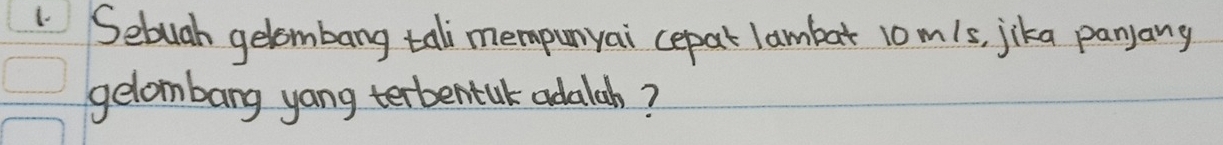 1. Sebuah gelombang tali mempunyai cepat lambat 10 m/s, jika panjang
gelombang yang terbentuk adalah ?